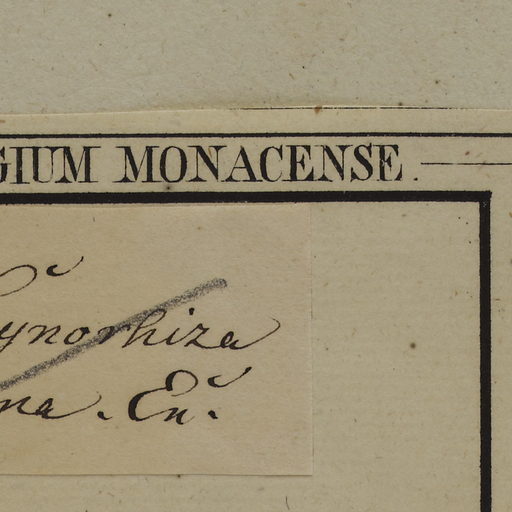 GIUM MONACENSE.
ynorhiza
na. En.